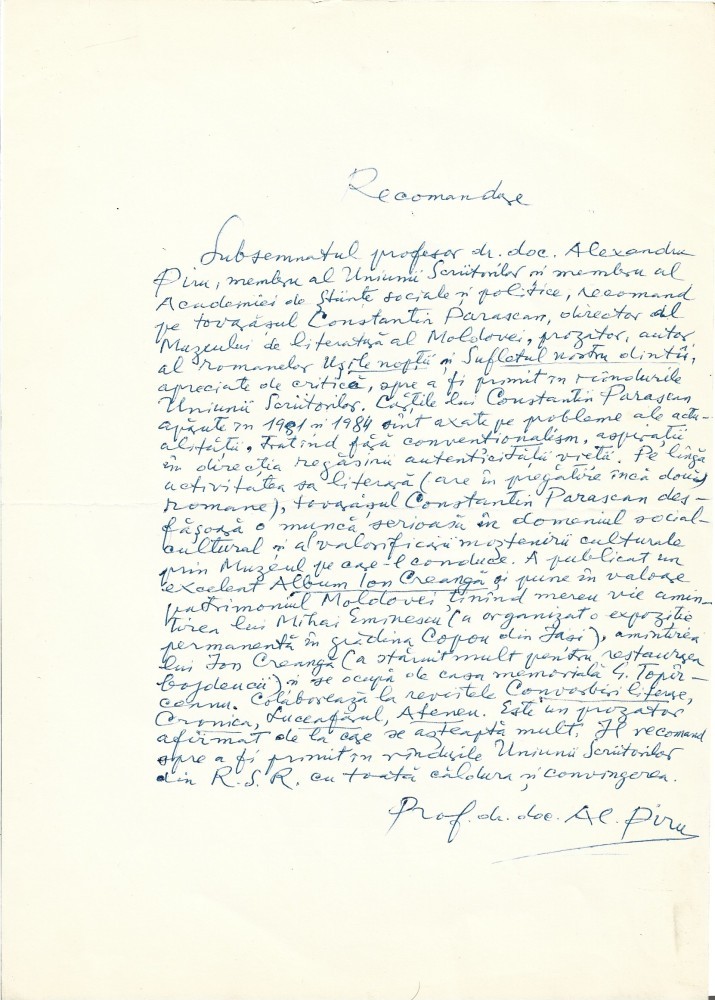 Recomandare
Subsemnatul profesor dr. doc. Alexandru
Piru, membru al Uniunii Scriitorilor și membru al
Academiei de Științe sociale și politice, recomand
pe tovarășul Constantin Parascan, director al
Muzeului de literatură al Moldovei, prozator, autor
al romanelor Ușile nopții și Sufletul nostru dintîi,
apreciate de critică, spre a fi primit în rîndurile
Uniunii Scriitorilor. Cărțile lui Constantin Parascan
apărute în 1981 și 1984 sînt axate pe probleme ale actu-
alității, tratînd fără convenționalism, aspirații
în direcția regăsirii autenticității vieții. Pe lîngă
activitatea sa literară (are în pregătire încă două
romane), tovarășul Constantin Parascan des-
fășoară o muncă serioasă în domeniul social-
cultural și al valorificării moștenirii culturale
prin Muzeul pe care-l conduce. A publicat un
excelent Album Ion Creangă și pune în valoare
patrimoniul Moldovei ținînd mereu vie amin-
tirea lui Mihai Eminescu (a organizat o expoziție
permanentă în grădina Copou din Iași), amintirea
lui Ion Creangă (a stăruit mult pentru restaurarea
bojdeucii) și se ocupă de casa memorială G. Topîr-
ceanu. Colaborează la revistele Convorbiri literare,
Cronica, Luceafărul, Ateneu. Este un prozator
afirmat de la care se așteaptă mult. Îl recomand
spre a fi primit în rîndurile Uniunii Scriitorilor
din R.S.R. cu toată căldura și convingerea.
Prof. dr. doc. Al. Piru